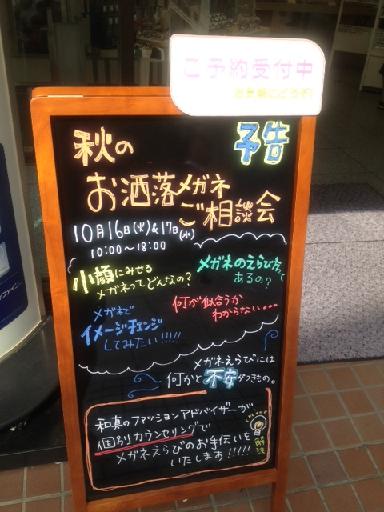 ご予約受付中
予告
秋の
お洒落メガネ
ご相談会
10月16日(火)&17日(水)
10:00~18:00
小顔にみせる
メガネってどんなの?
メガネのえらび方
あるの?
何が似合うか
わからない…
メガネで
イメージチェンジ
してみたい!!!!
メガネえらびには
何かと不安がつきもの。
和真のファッションアドバイザーが
個別カウンセリングで
メガネえらびのお手伝いを
いたします!!!!!
解決